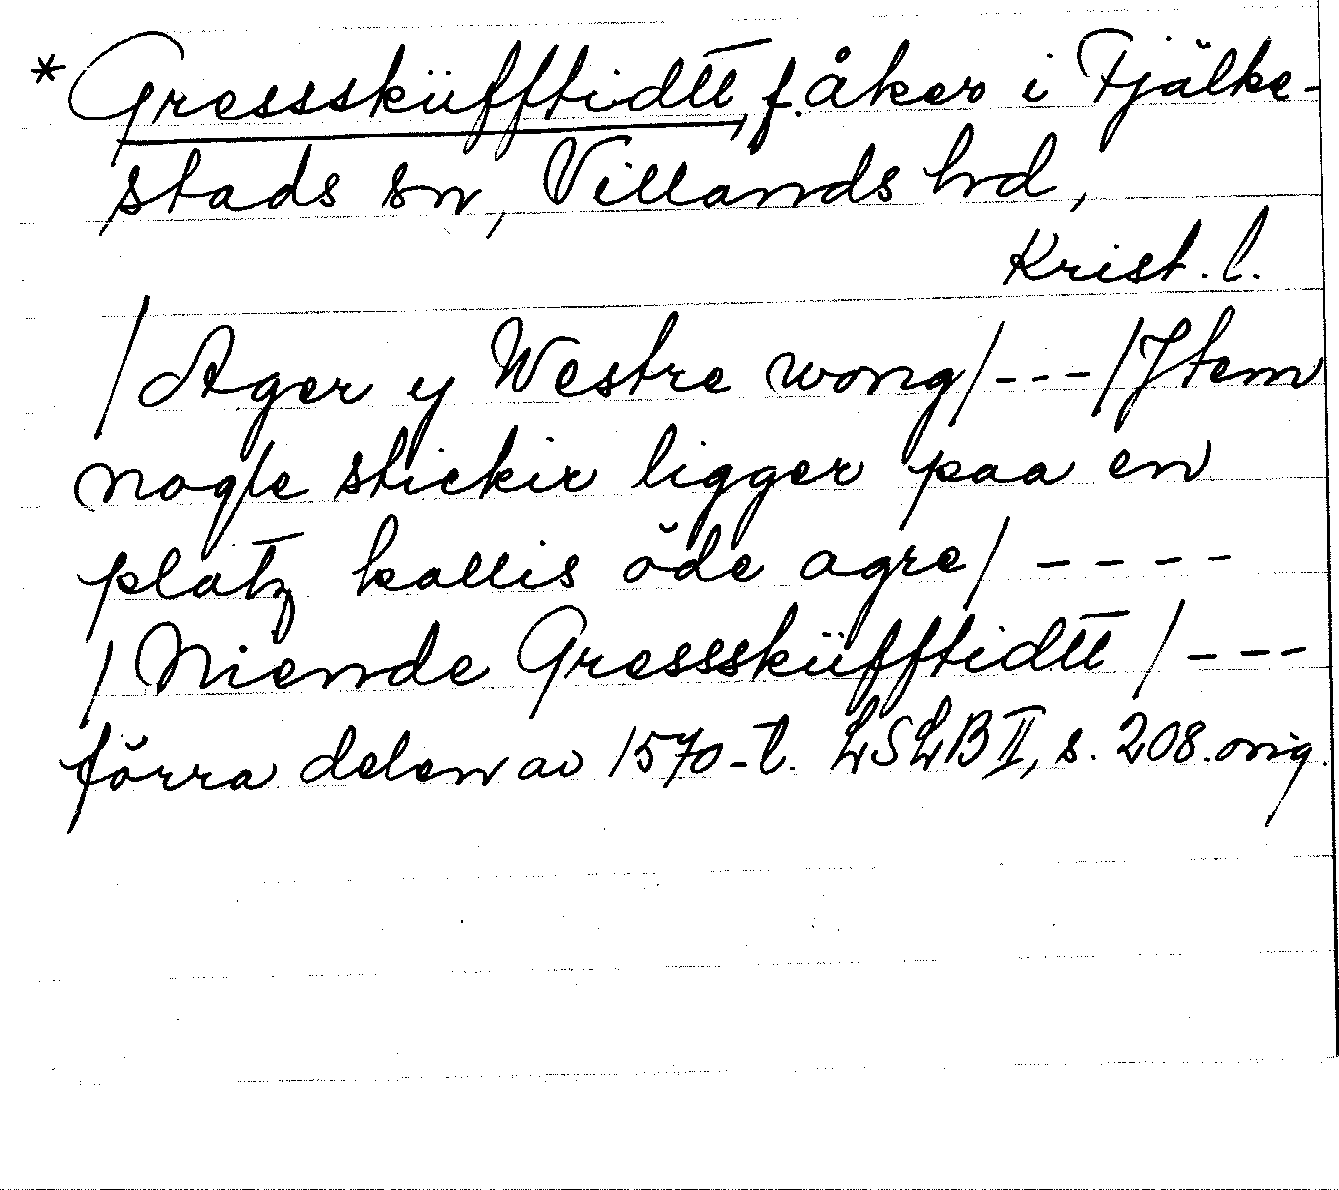 * Gresssküfftidtt, f. åker i Fjälke-
stads sn, Villands hd,
Krist. l.
/Ager y Westre wong/---/Jtem
nogle stickir ligger paa en
platz kallis öde agre/ ----
/Niende Gresssküfftidtt /---
förra delen av 1570-t. LSLB II, s. 208. orig.